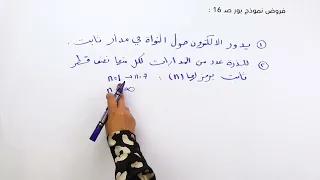 فروض نموذج بور صـ 16 :
① يدور الالكترون حول النواة في مدار ثابت.
② للذرة عدد من المدارات لكل منها نصف قطر
ثابت يرمز لها (n) : n=1 → n=7
n = ∞